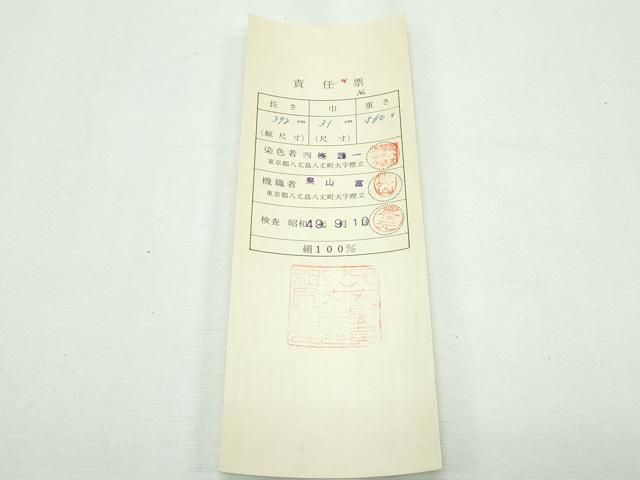 責任票
№
長さ 巾 重さ
392 cm 31 cm 560 g
(鯨尺寸) (尺寸)
染色者 西條謹一
東京都八丈島八丈町大字樫立
機織者 奥山富
東京都八丈島八丈町大字樫立
検査 昭和 49 9月 10
絹100%